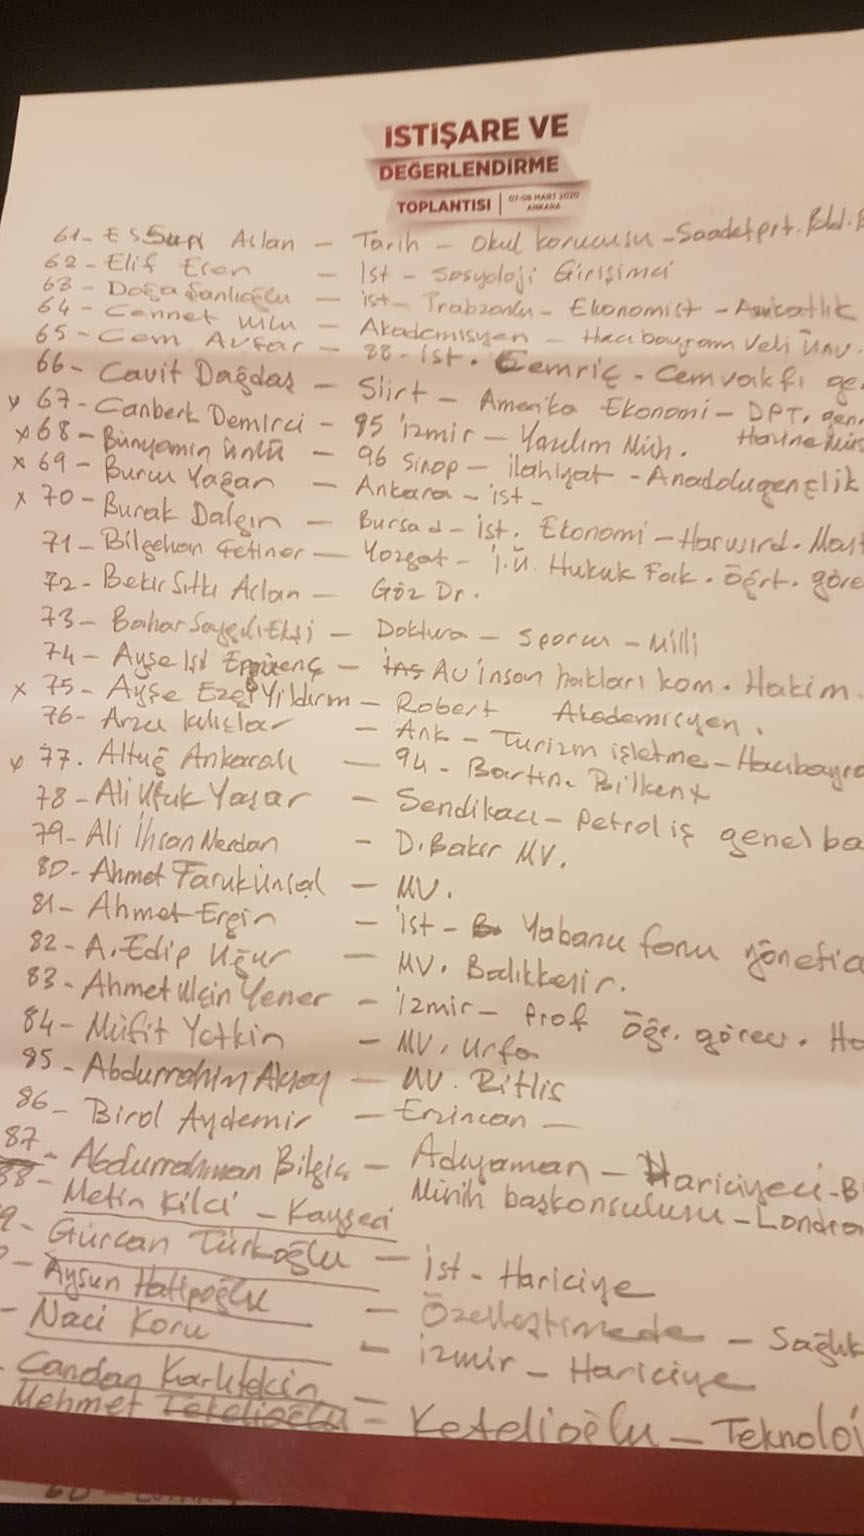 İSTİŞARE VE
DEĞERLENDİRME
TOPLANTISI | 07-08 MART 2020 ANKARA
61- Aslan - Tarih - okul korucusu - Saadet prt.
62- Elif Esen - İst - Sosyoloji Girişimci
63- Doğa Şanlıoğlu - ist - Trabzonlu - Ekonomist - Avukatlık
64- Cennet Uslu - Akademisyen - Hacıbayram Veli Ünv.
65- Cem Avşar - 88 - ist. - Cemvakfı ge
66- Cavit Dağdaş - Siirt - Amerika Ekonomi - DPT, gen.
x 67- Canberk Demirci - 95 izmir - Yazılım Müh. Hazine
x 68- Bünyamin Ünlü - 96 Sinop - ilahiyat - Anadolugençlik
x 69- Burcu Yağan - Ankara - ist -
x 70- Burak Dalgın - Bursa - ist. Ekonomi - Harward.
71- Bilgehan Çetiner - Yozgat - İ.Ü. Hukuk Fak. öğrt. göre
72- Bekir Sıtkı Aslan - Göz Dr.
73- Bahar Ekşi - Doktora - sporcu - Milli
74- Ayşe Işıl - Av insan hakları kom. Hakim.
x 75- Ayşe Ezel Yıldırım - Robert Akademisyen.
76- Arzu Kılıçlar - Ank - Turizm işletme - Hacıbayra
x 77. Altuğ Ankaralı - 94 - Bartın - Bilkent
78- Ali Ufuk Yaşar - Sendikacı - petrol iş genel ba
79- Ali İhsan Merdan - D.Bakır MV.
80- Ahmet Faruk Ünsal - MV.
81- Ahmet Ergin - ist - Yabancı fonu yönetic
82- A. Edip Uğur - MV. Balıkkesir.
83- Ahmet Yener - izmir - Prof Öğr. görev.
84- Müfit Yetkin - MV, Urfa
85- Abdurrahim Aksoy - MV. Bitlis
86- Birol Aydemir - Erzincan -
87- Abdurrahman Bilgiç - Adıyaman - Hariciyeci - B
Münih başkonsolusu - Londra
88- Metin Kilci - Kayseri
9- Gürcan Türkoğlu - ist - Hariciye
- Aysun Hatipoğlu - Özelleştirmede - Sağlık
- Naci Koru - izmir - Hariciye
Candan Karlıtekin -
Mehmet - Ketelioğlu - Teknoloj